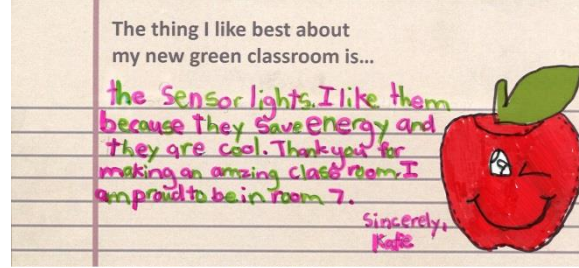 The thing I like best about
my new green classroom is...
the sensor lights. I like them
because they save energy and
they are cool. Thank you for
making an amzing class room. I
am proud to be in room 7.
Sincerely,
Kate